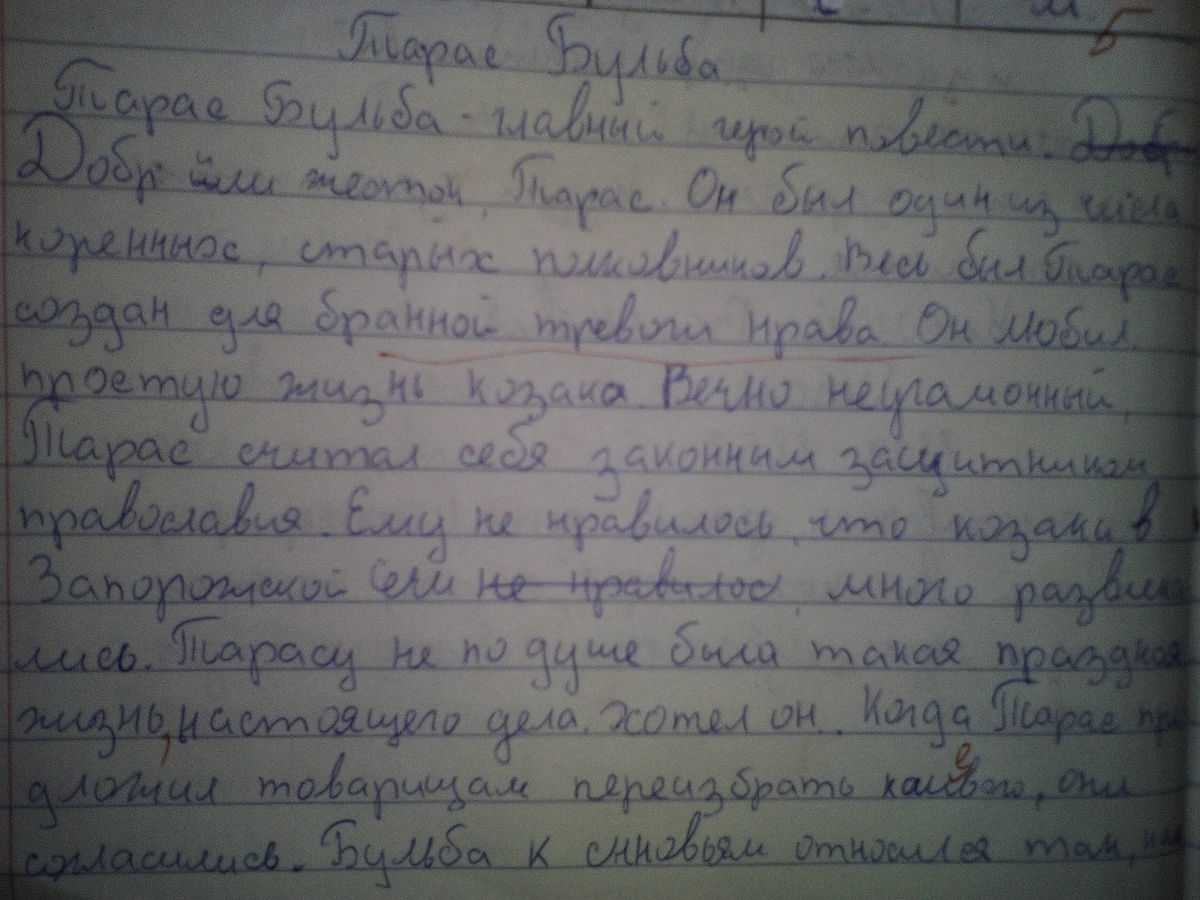 Тарас Бульба
Тарас Бульба - главный герой повести. Доб
Добр или жесток, Тарас. Он был один из числа
коренных, старых полковников. Весь был Тарас
создан для бранной тревоги нрава Он любил
простую жизнь козака. Вечно неугамонный,
Тарас считал себя законным защитником
православия. Ему не нравилось, что козаки в
Запорожской Сечи не нравилос, много развлека
лись. Тарасу не по душе была такая праздная
жизнь, настоящего дела хотел он. Когда Тарас пре
дложил товарищам переизбрать кошевого, они
согласились. Бульба к сыновьям относился так,